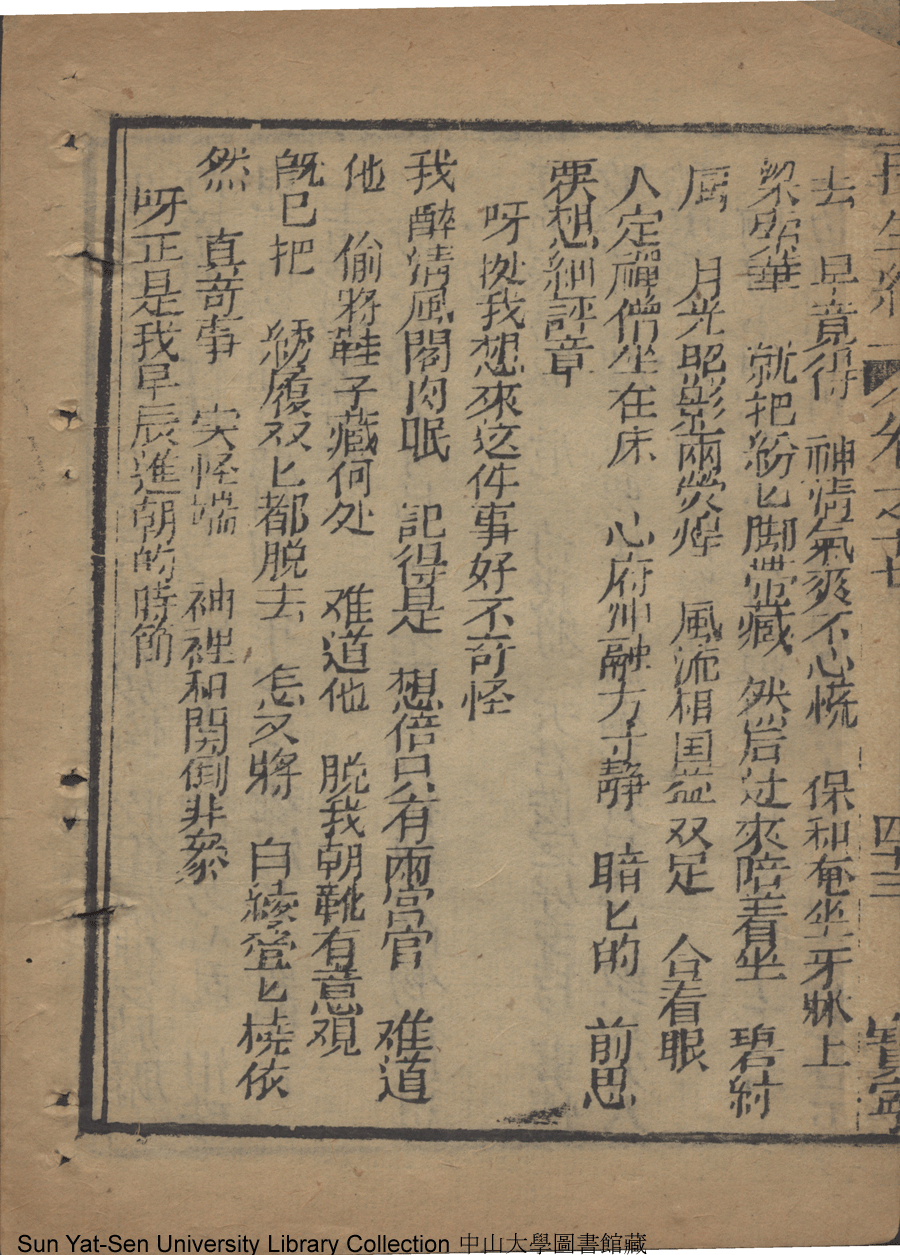 再生緣 卷之十七 四十三
去 早竟得 神情氣爽不心慌 保和奄坐牙牀上
梁昭華 就把紛匕脚帶藏 然后过來陪着坐 碧紗
㕑 月光昭影兩熒煌 風流相国盆双足 合看眼
人定禪僧坐在床 心府冲融方寸静 暗匕的 前思
後想細評章
呀 我想來这件事好不奇怪
我醉清風閣内眠 記得是 想倍只有兩宫官 难道
他 偷將鞋子藏何处 难道他 脱我朝靴有意观
既已把 綉履双匕都脱去 怎又將 白綾叠匕橈依
然 真奇事 实怪端 袖裡和閗倒非
呀正是我早辰進朝的時節
Sun Yat-Sen University Library Collection 中山大學圖書館藏